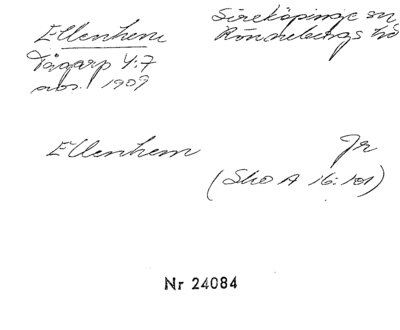 Ellenhem
Sireköpinge sn
Tågarp 4:7
Rönnebergs hd
avs. 1909
Ellenhem
Jr
(Sko A 16:101)
Nr 24084